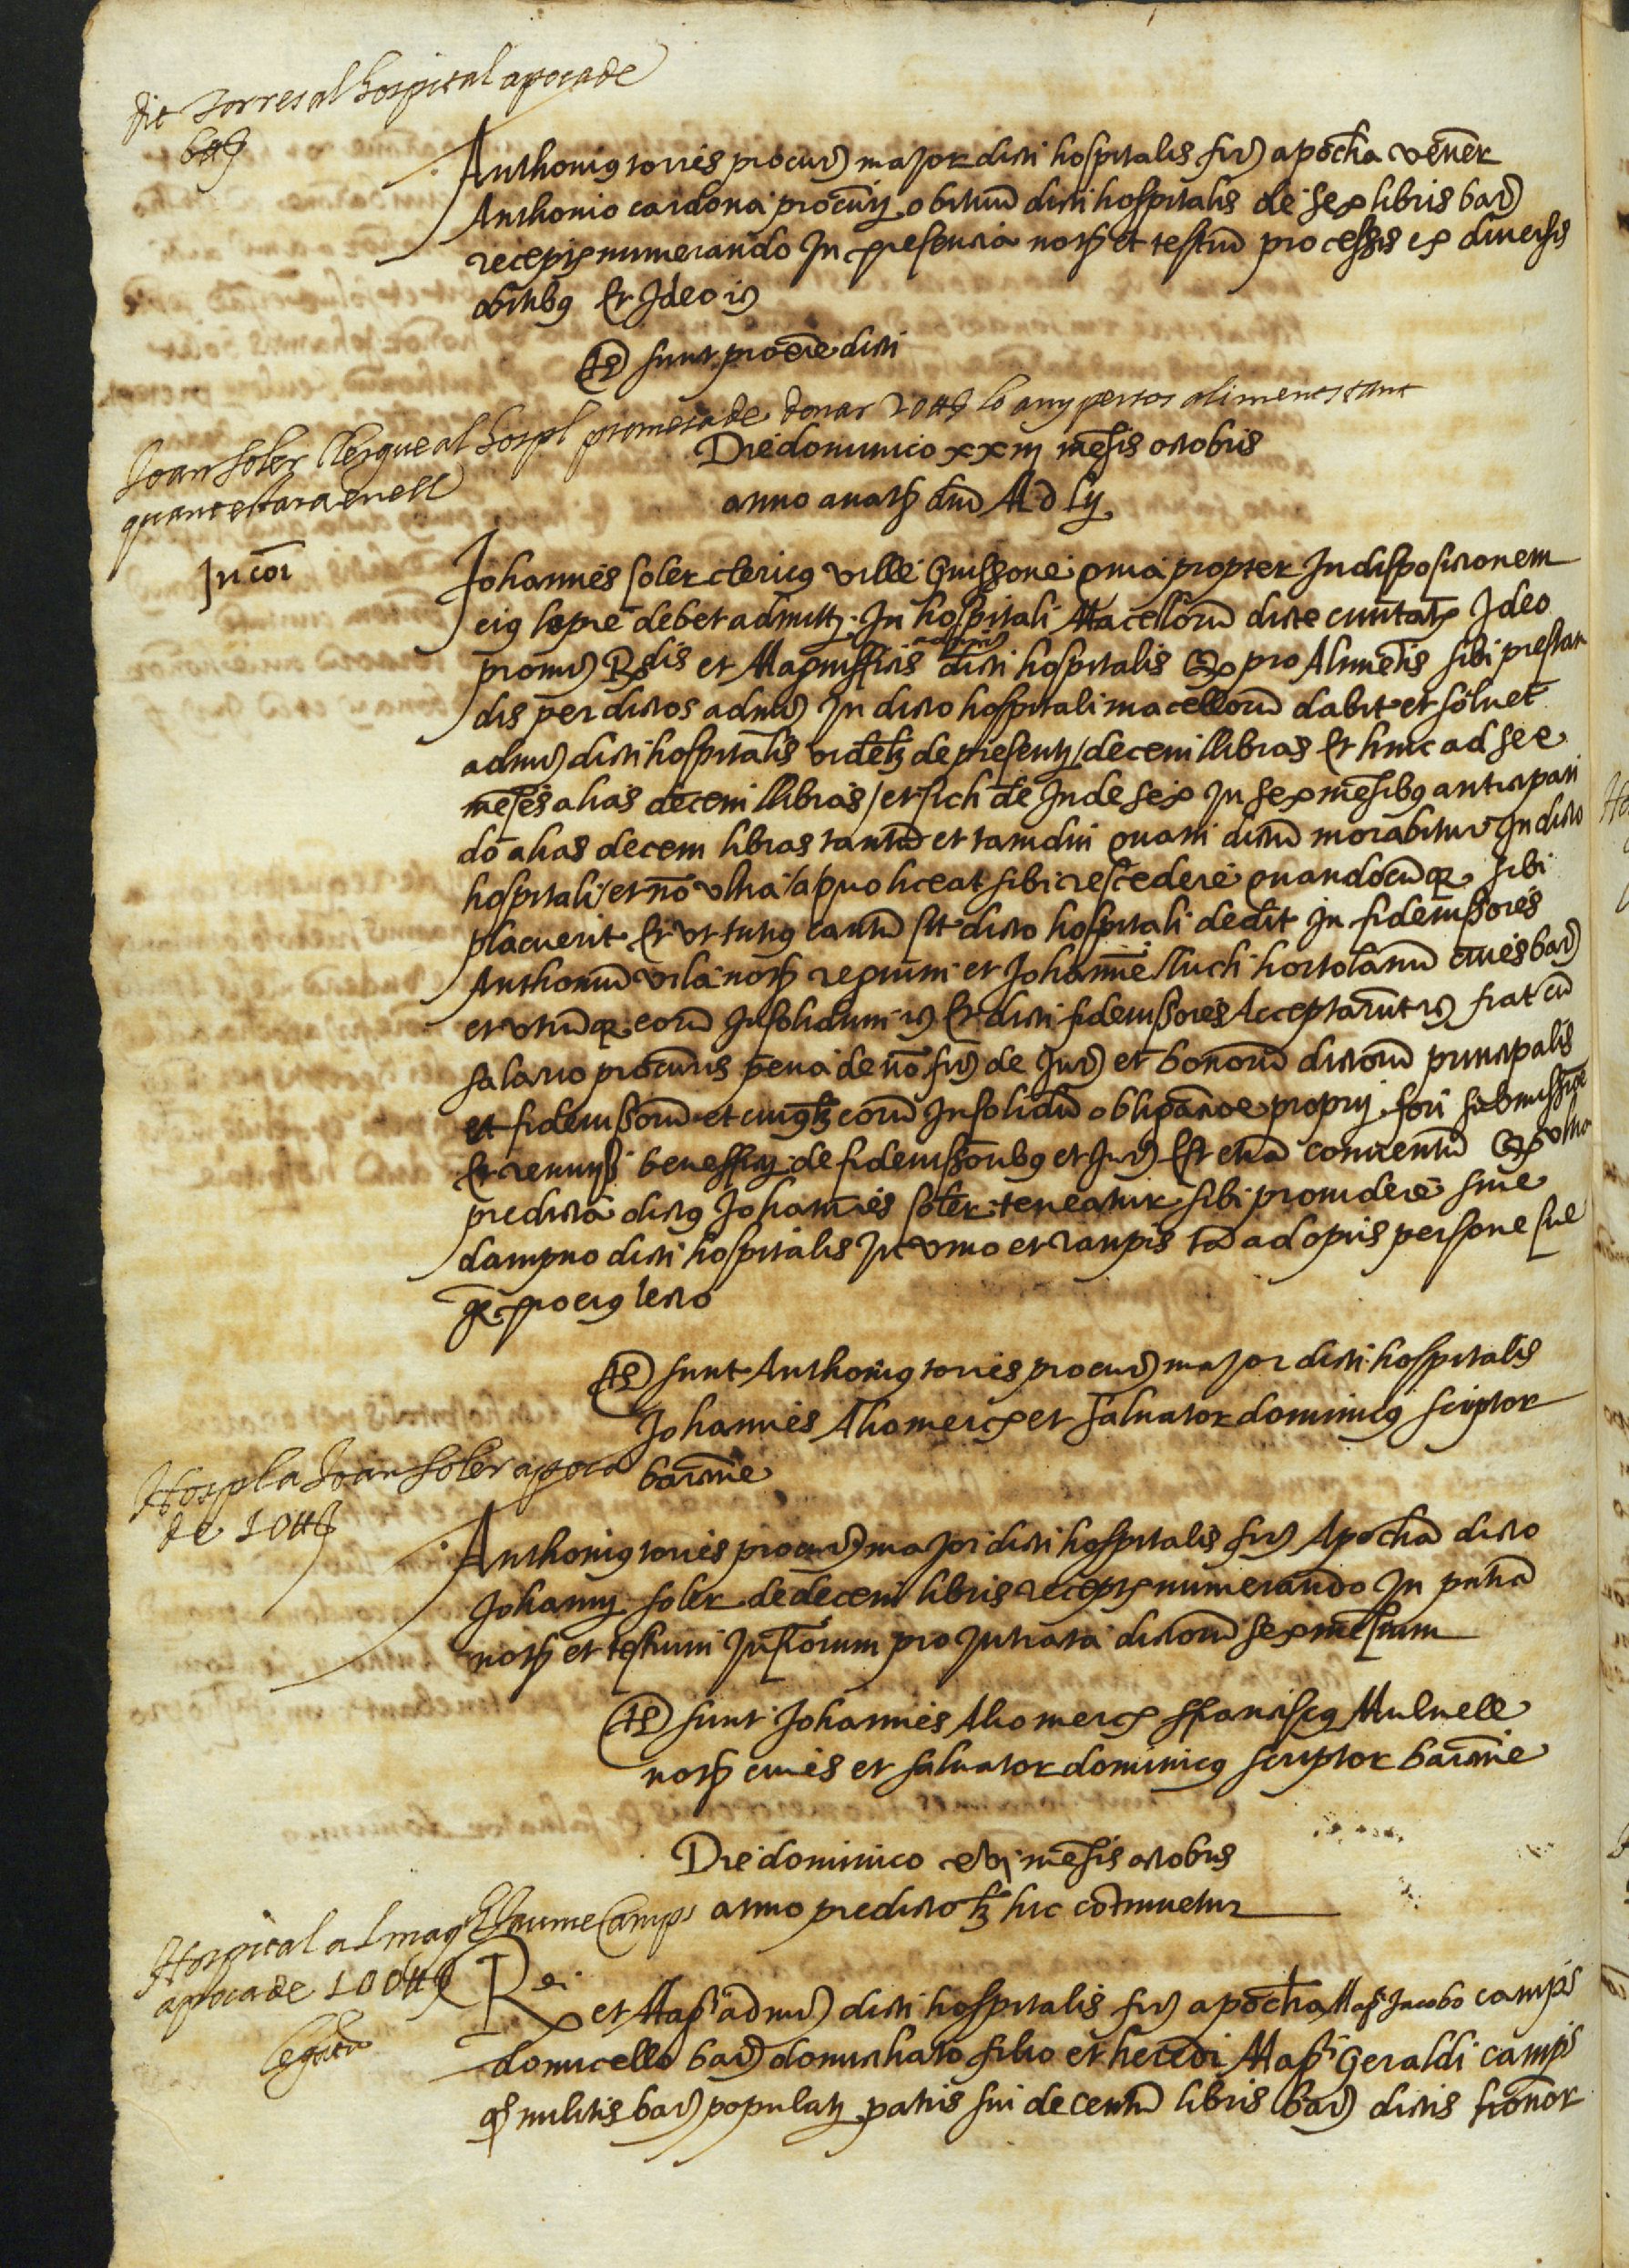 dit Torres al hospital apoca de
6 ₶ S
Anthonius torres procur major dicti hospitalis fir apocha vener
Anthonio cardona procuri obituu dicti hospitalis de sex libris bar
receptis numerando In presentia noth et testiu processis ex diversis
obitibus Et Ideo ic
Ts sunt proxe dicti
Joan soler clergue al hospl promesa de donar 20 ₶ S lo any per los aliments tant
quant estara en ell
Die dominico xxiii mesis octobris
anno a nath dni M D Lij
In cor
Johannes soler clericus ville Guissone quia propter Indispositionem
eius lepre debet admitti In hospitali Macelloru dicte civitatis Ideo
promis Rdis et Magnifficis admin dicti hospitalis Qz pro Alimetis sibi prestan
dis per dictos admin In dicto hospitali macellorum dabit et solvet
admin dicti hospitalis videlz de presenti / decem llibras Et hinc ad sex
meses alias decem llibras / et sich de Inde sex In sex mesibus anticipan
do alias decem libras tantu et tamdiu quam dictu morabitur In dicto
hospitali / et no ultra / a quo liceat sibi rescedere quandocuqz sibi
placuerit Et ut tutius cautu sit dicto hospitali dedit In fidemssores
Anthoniu vila noth regium et Johanne lluch hortolanu cives bar
et utruqz eoru Insolidum ic Et dicti fidemssores Acceptarunt ic fiat cu
salario procuris pena de no fir de Jur et bonoru dictoru principalis
et fidemssoru et cuiuslz eoru Insolidu obligacioe proprij fori submissioe
Et renuntis beneffitij de fidemssoribus et Jur Est etia conventu Qz ultra
predicta dictus Johannes soler teneatur sibi providere sine
dampno dicti hospitalis In vino et raupis ta ad opus persone sue
qz pro eius lecto
Ts sunt Anthonius torres procur major dicti hospitalis
Johannes Aliomerex et salvator dominicus scriptor
barcinone
Hospl a Joan soler apoca
de 10 ₶ S
Anthonius torres procur major dicti hospitalis fir Apocha dicto
Johanni soler de decem libris receptis numerando In pntia
noth et testium Infrorum pro Intrata dictoru sex mesium
Ts sunt Johannes Aliomerex ffranciscus Mulnell
noth cives et salvator dominicus scriptor barcinone
Die dominico xvi mesis octobris
anno predicto lz hic continuetur
Hospital al magch Jaume Camps
apoca de 100 ₶ S
legatu
Rdi
et Magci admin dicti hospitalis fir apocha Magco Jacobo camps
domicello bar domiciliato filio et heredi Magci Geraldi camps
qo militis bar populati patris sui de centu libris bar dictis honor